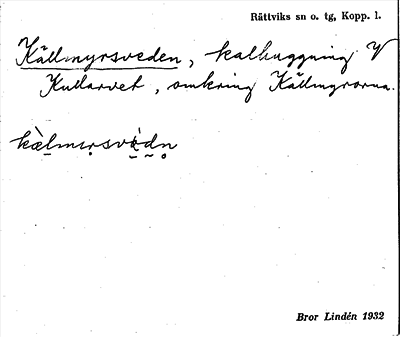 Rättviks sn o. tg, Kopp. l.
Källmyrsveden, kalhuggning V
Kullarvet, omkring Källmyrorna.
kæ̀lmırsvèdn
Bror Lindén 1932